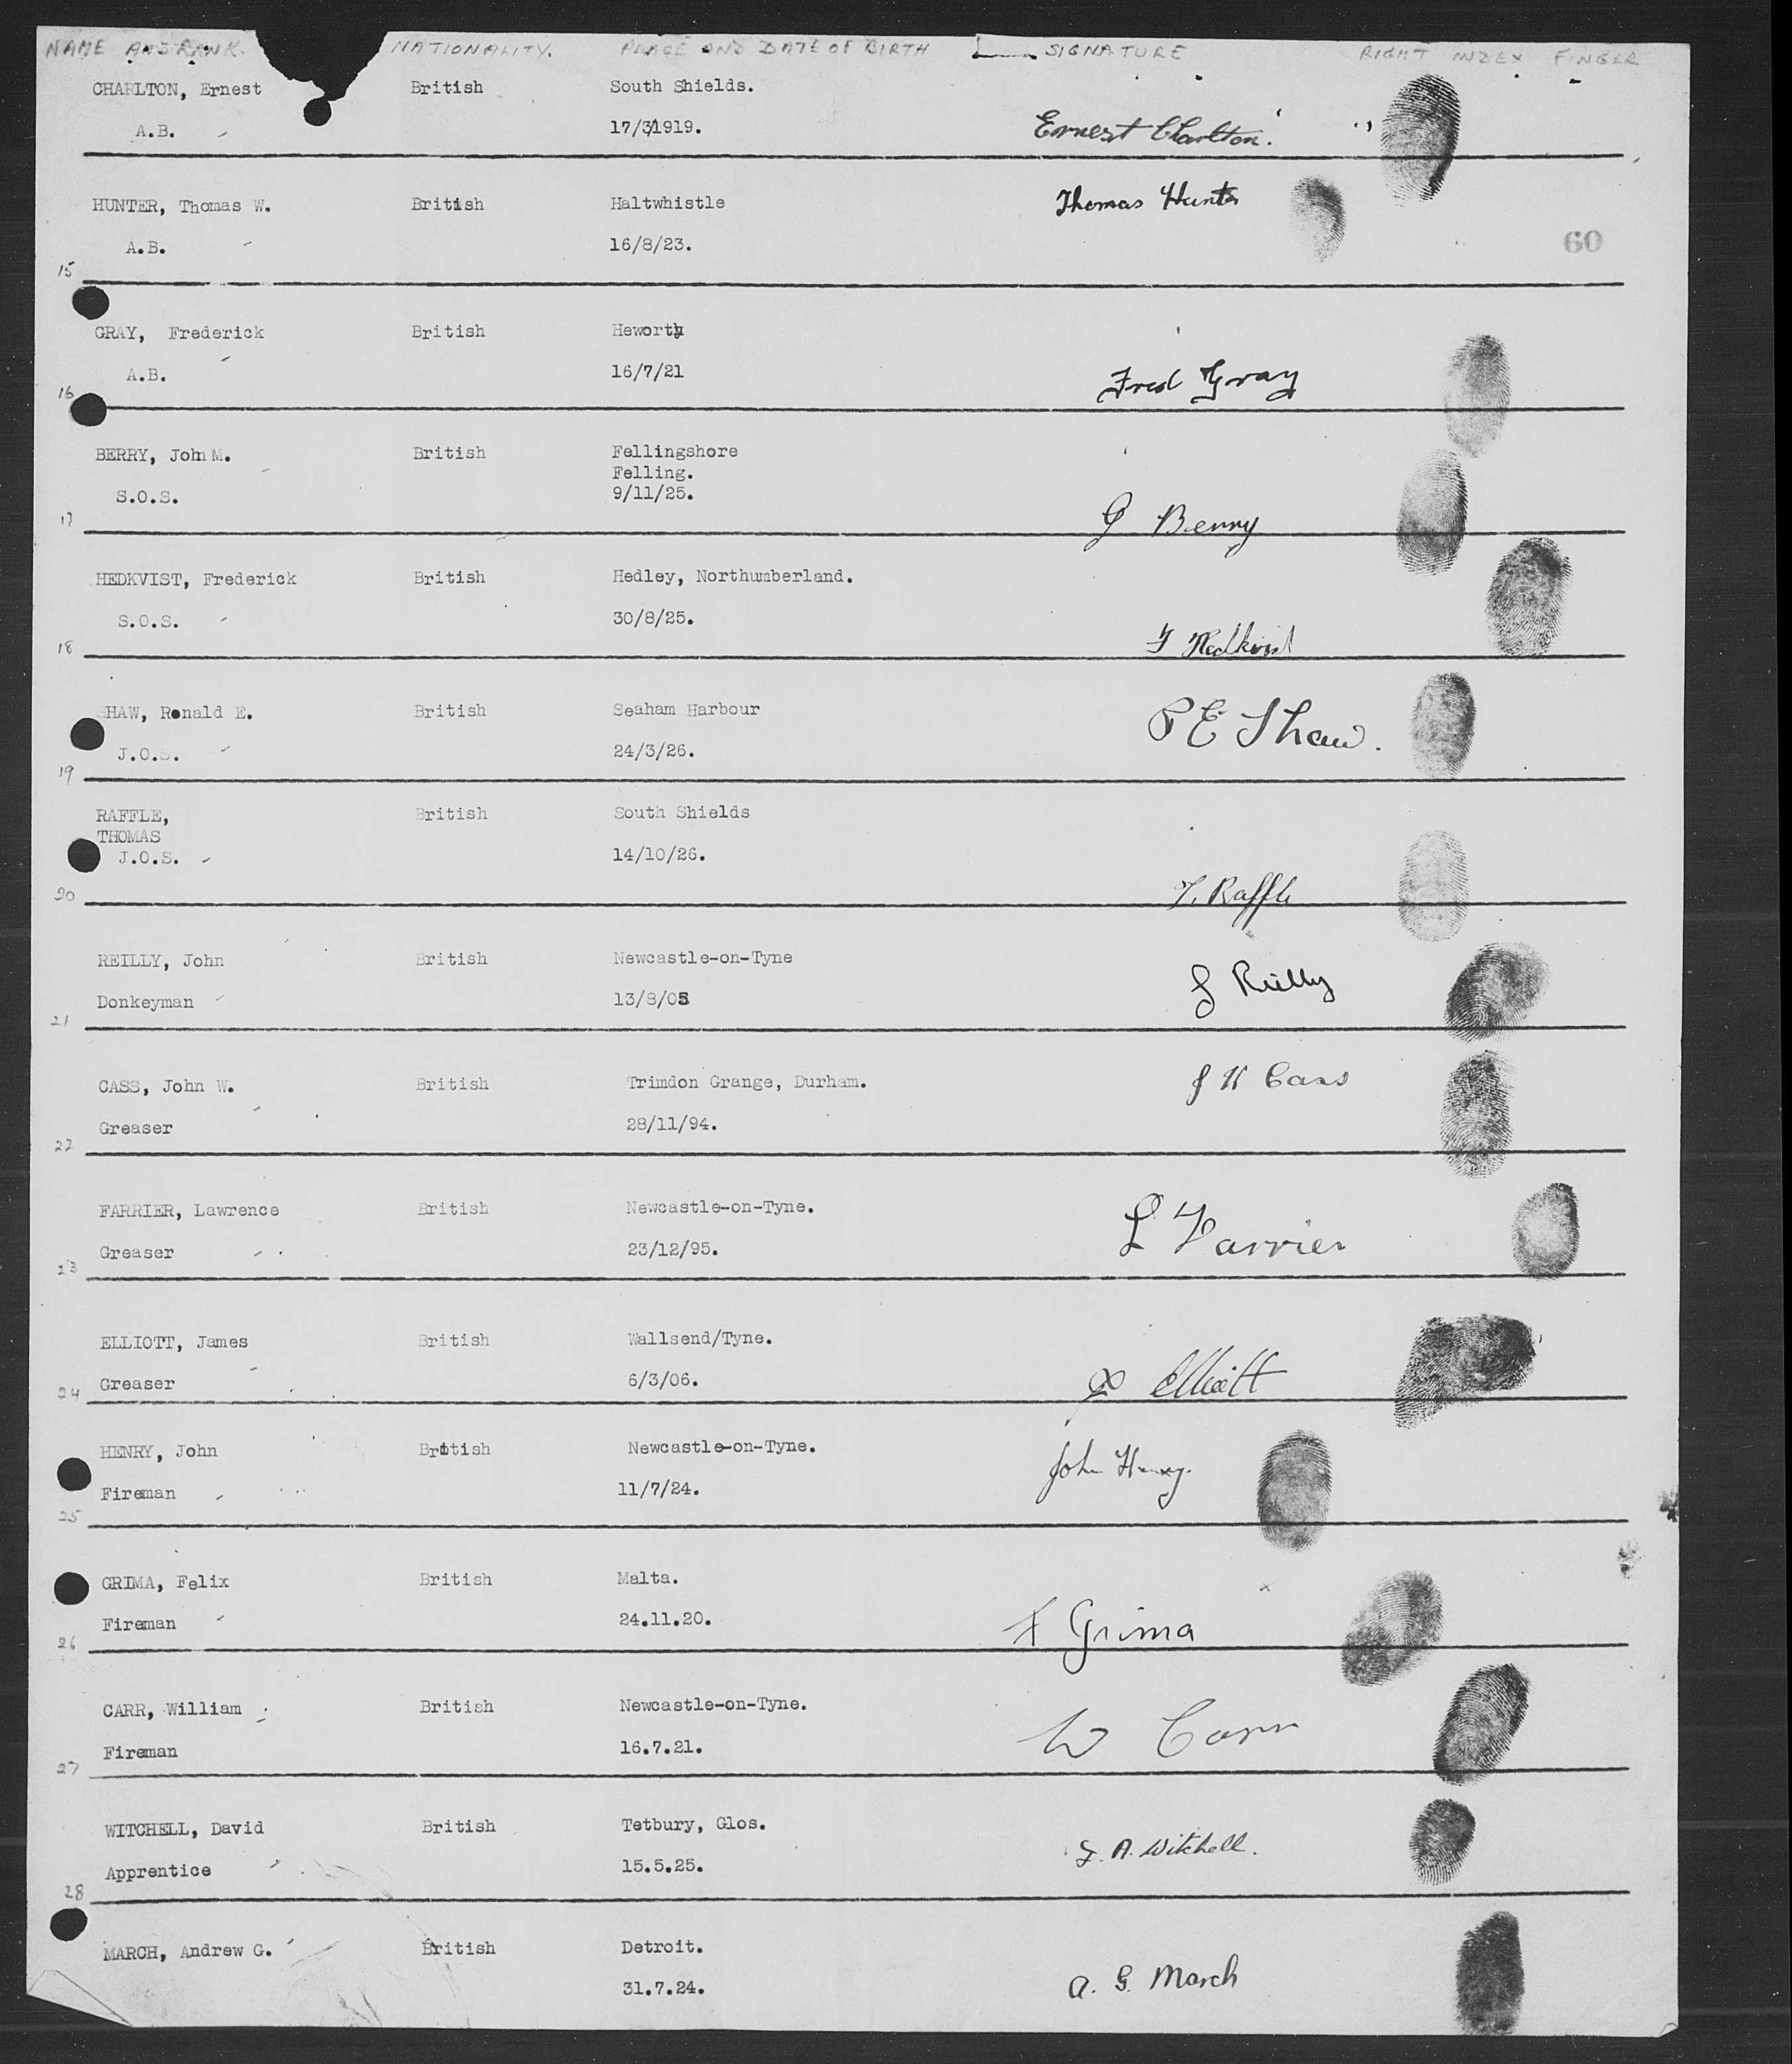 NAME AND RANK. NATIONALITY. PLACE AND DATE OF BIRTH SIGNATURE RIGHT INDEX FINGER
CHARLTON, Ernest British South Shields.
A.B. 17/3/1919. Ernest Charlton.
HUNTER, Thomas W. British Haltwhistle Thomas Hunter
A.B. 16/8/23. 60
15
GRAY, Frederick British Heworth
A.B. 16/7/21 Fred Gray
16
BERRY, John M. British Fellingshore
Felling.
S.O.S. 9/11/25.
17 J Berry
HEDKVIST, Frederick British Hedley, Northumberland.
S.O.S. 30/8/25.
18 F Hedkvist
SHAW, Ronald E. British Seaham Harbour R E Shaw.
J.O.S. 24/3/26.
19
RAFFLE, British South Shields
THOMAS
J.O.S. 14/10/26.
20 T. Raffle
REILLY, John British Newcastle-on-Tyne J Reilly
Donkeyman 13/8/05
21
CASS, John W. British Trimdon Grange, Durham. J W Cass
Greaser 28/11/94.
22
FARRIER, Lawrence British Newcastle-on-Tyne. L Farrier
Greaser 23/12/95.
23
ELLIOTT, James British Wallsend/Tyne.
Greaser 6/3/06. J Elliott
24
HENRY, John British Newcastle-on-Tyne. John Henry.
Fireman 11/7/24.
25
GRIMA, Felix British Malta.
Fireman 24.11.20. F Grima
26
CARR, William British Newcastle-on-Tyne. W Carr
Fireman 16.7.21.
27
WITCHELL, David British Tetbury, Glos. D. A. Witchell.
Apprentice 15.5.25.
28
MARCH, Andrew G. British Detroit.
31.7.24. A. G. March